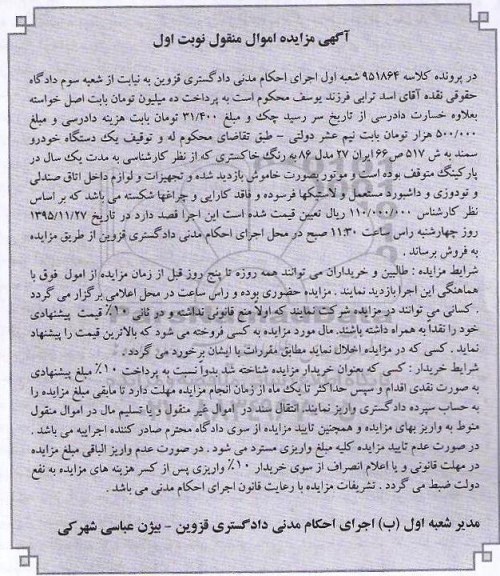 آگهی مزایده اموال منقول نوبت اول
در پرونده کلاسه ۹۵۱۸۶۴ شعبه اول اجرای احکام مدنی دادگستری قزوین به نیابت از شعبه سوم دادگاه
حقوقی نقده آقای اسد ترابی فرزند یوسف محکوم است به پرداخت ده میلیون تومان بابت اصل خواسته
بعلاوه خسارت دادرسی از تاریخ سر رسید چک و مبلغ ۳۱/۴۰۰ تومان بابت هزینه دادرسی و مبلغ
۵۰۰/۰۰۰ هزار تومان بابت نیم عشر دولتی - طبق تقاضای محکوم له و توقیف یک دستگاه خودرو
سمند به ش ۵۱۷ ص ۶۶ ایران ۲۷ مدل ۸۶ به رنگ خاکستری که از نظر کارشناسی به مدت یک سال در
پارکینگ متوقف بوده است و موتور بصورت خاموش بازدید شده و تجهیزات و لوازم داخل اتاق صندلی
و تودوزی و داشبورد مستعمل و لاستیکها فرسوده و فاقد کارایی و چراغها شکسته می باشد که بر اساس
نظر کارشناس ۱۱۰/۰۰۰/۰۰۰ ریال تعیین قیمت شده است این اجرا قصد دارد در تاریخ ۱۳۹۵/۱۱/۲۷
روز چهارشنبه راس ساعت ۱۱:۳۰ صبح در محل اجرای احکام مدنی دادگستری قزوین از طریق مزایده
به فروش برساند .
شرایط مزایده : طالبین و خریداران می توانند همه روزه تا پنج روز قبل از زمان مزایده از اموال فوق با
هماهنگی این اجرا بازدید نمایند . مزایده حضوری بوده و راس ساعت در محل اعلامی برگزار می گردد
. کسانی می توانند در مزایده شرکت نمایند که اولاً منع قانونی نداشته و در ثانی ۱۰٪ قیمت پیشنهادی
خود را نقداً به همراه داشته باشند. مال مورد مزایده به کسی فروخته می شود که بالاترین قیمت را پیشنهاد
نماید . کسی که در مزایده اخلال نماید مطابق مقررات با ایشان برخورد می گردد .
شرایط خریدار : کسی که بعنوان خریدار مزایده شناخته شد بدواً نسبت به پرداخت ۱۰٪ مبلغ پیشنهادی
به صورت نقدی اقدام و سپس حداکثر تا یک ماه از زمان انجام مزایده مهلت دارد تا مابقی مبلغ مزایده را
به حساب سپرده دادگستری واریز نمایند. انتقال سند در اموال غیر منقول و یا تسلیم مال در اموال منقول
منوط به واریز بهای مزایده و همچنین تایید مزایده از سوی دادگاه محترم صادر کننده اجراییه می باشد .
در صورت عدم تایید مزایده کلیه مبلغ واریزی مسترد می شود . در صورت عدم واریز الباقی مبلغ مزایده
در مهلت قانونی و یا اعلام انصراف از سوی خریدار ۱۰٪ واریزی پس از کسر هزینه های مزایده به نفع
دولت ضبط می گردد . تشریفات مزایده با رعایت قانون اجرای احکام مدنی می باشد .
مدیر شعبه اول (ب) اجرای احکام مدنی دادگستری قزوین - بیژن عباسی شهرکی